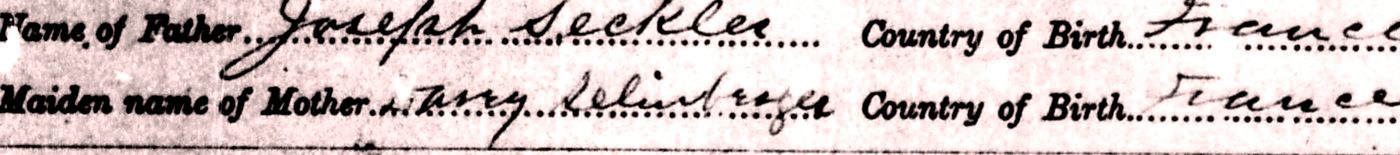 Name of Father Joseph Seckler Country of Birth France
Maiden name of Mother Mary Country of Birth France